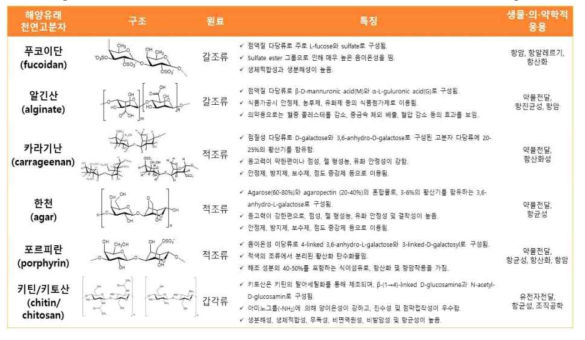 해양유래
천연고분자
구조
원료
특징
생물·의·약학적
응용
푸코이단
(fucoidan)
갈조류
점액질 다당류로 주로 L-fucose와 sulfate로 구성됨.
Sulfate ester 그룹으로 인해 매우 높은 음이온성을 띔.
생체적합성과 생분해성이 높음.
항암, 항알레르기,
항산화
알긴산
(alginate)
갈조류
점액질 다당류로 β-D-mannruronic acid(M)와 α-L-guluronic acid(G)로 구성됨.
식품가공시 안정제, 농후제, 유화제 등의 식품첨가제로 이용됨.
의약용으로는 혈중 콜레스테롤 감소, 중금속 체외 배출, 혈압 감소 등의 효과를 보임.
약물전달,
항진균성, 항암
카라기난
(carrageenan)
적조류
점질성 다당류로 D-galactose와 3,6-anhydro-D-galactose로 구성된 고분자 다당류에 20-
25%의 황산기를 함유함.
응고력이 약한편이나 점성, 겔 형성능, 유화 안정성이 강함.
안정제, 방지제, 보수제, 점도 증강제 등으로 이용됨.
약물전달,
항산화성
한천
(agar)
적조류
Agarose(60-80%)와 agaropectin (20-40%)의 혼합물로, 3-6%의 황산기를 함유하는 3,6-
anhydro-L-galactose로 구성됨.
응고력이 강한편으로, 점성, 겔 형성능, 유화 안정성 및 결착성이 높음.
안정제, 방지제, 보수제, 점도 증강제 등으로 이용됨.
약물전달,
항균성
포르피란
(porphyrin)
적조류
음이온성 이당류로 4-linked 3,6-anhydro-L-galactose와 3-linked-D-galactosyl로 구성됨.
적색의 조류에서 분리된 황산화 탄수화물임.
해조 성분의 40-50%를 포함하는 식이섬유로, 항산화 및 항암작용을 가짐.
약물전달,
항균성, 항산화, 항암
키틴/키토산
(chitin/
chitosan)
갑각류
키토산은 키틴의 탈아세틸화를 통해 제조되며, β-(1→4)-linked D-glucosamine과 N-acetyl-
D-glucosamin로 구성됨.
아미노그룹(-NH₂)에 의해 양이온성이 강하고, 친수성 및 점막접착성이 우수함.
생분해성, 생체적합성, 무독성, 비면역원성, 비발암성 및 항균성이 높음.
유전자전달,
항균성, 조직공학